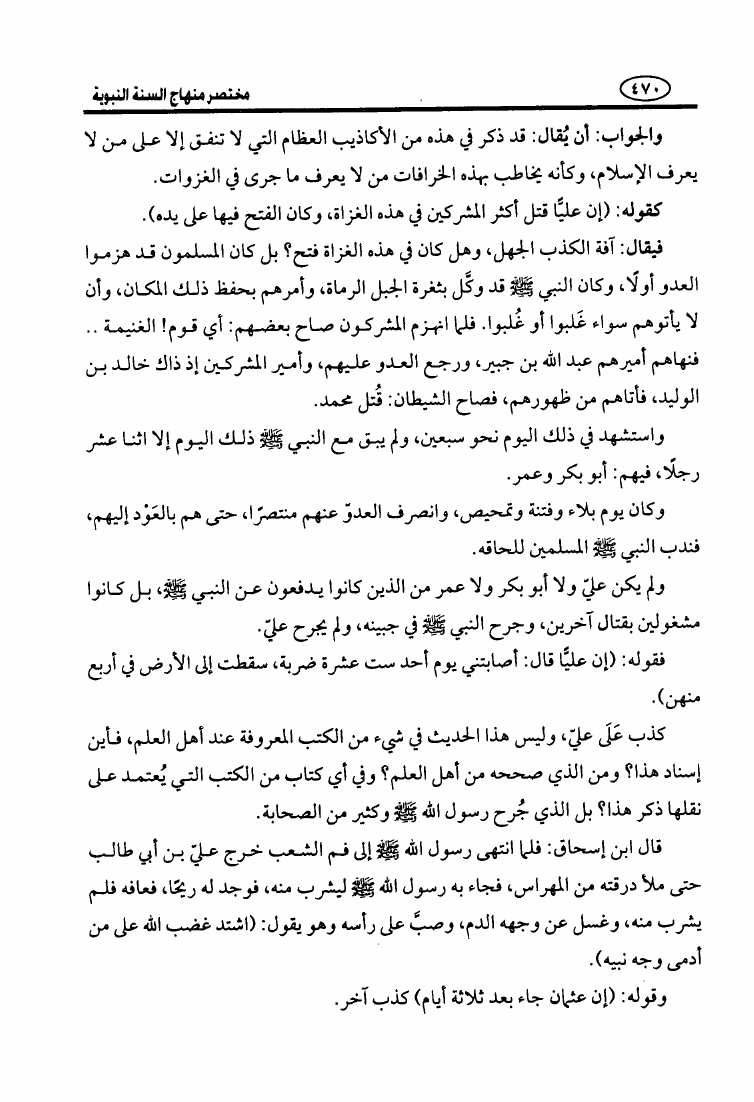 ٤٧٠ مختصر منهاج السنة النبوية
والجواب: أن يُقال: قد ذكر في هذه من الأكاذيب العظام التي لا تنفق إلا على من لا
يعرف الإسلام، وكأنه يخاطب بهذه الخرافات من لا يعرف ما جرى في الغزوات.
كقوله: (إن عليًّا قتل أكثر المشركين في هذه الغزاة، وكان الفتح فيها على يده).
فيقال: آفة الكذب الجهل، وهل كان في هذه الغزاة فتح؟ بل كان المسلمون قد هزموا
العدو أولًا، وكان النبي ﷺ قد وكَّل بثغرة الجبل الرماة، وأمرهم بحفظ ذلك المكان، وأن
لا يأتوهم سواء غَلبوا أو غُلبوا. فلما انهزم المشركون صاح بعضهم: أي قوم! الغنيمة ..
فنهاهم أميرهم عبد الله بن جبير، ورجع العدو عليهم، وأمير المشركين إذ ذاك خالد بن
الوليد، فأتاهم من ظهورهم، فصاح الشيطان: قُتل محمد.
واستشهد في ذلك اليوم نحو سبعين، ولم يبق مع النبي ﷺ ذلك اليوم إلا اثنا عشر
رجلًا، فيهم: أبو بكر وعمر.
وكان يوم بلاء وفتنة وتمحيص، وانصرف العدوّ عنهم منتصرًا، حتى هم بالعَوْد إليهم،
فندب النبي ﷺ المسلمين للحاقه.
ولم يكن عليّ ولا أبو بكر ولا عمر من الذين كانوا يدفعون عن النبي ﷺ، بل كانوا
مشغولين بقتال آخرين، وجرح النبي ﷺ في جبينه، ولم يجرح عليّ.
فقوله: (إن عليًّا قال: أصابتني يوم أحد ست عشرة ضربة، سقطت إلى الأرض في أربع
منهن).
كذب عَلَى عليّ، وليس هذا الحديث في شيء من الكتب المعروفة عند أهل العلم، فأين
إسناد هذا؟ ومن الذي صححه من أهل العلم؟ وفي أي كتاب من الكتب التي يُعتمد على
نقلها ذكر هذا؟ بل الذي جُرح رسول الله ﷺ وكثير من الصحابة.
قال ابن إسحاق: فلما انتهى رسول الله ﷺ إلى فم الشعب خرج عليّ بن أبي طالب
حتى ملأ درقته من المهراس، فجاء به رسول الله ﷺ ليشرب منه، فوجد له ريحًا، فعافه فلم
يشرب منه، وغسل عن وجهه الدم، وصبَّ على رأسه وهو يقول: (اشتد غضب الله على من
أدمى وجه نبيه).
وقوله: (إن عثمان جاء بعد ثلاثة أيام) كذب آخر.